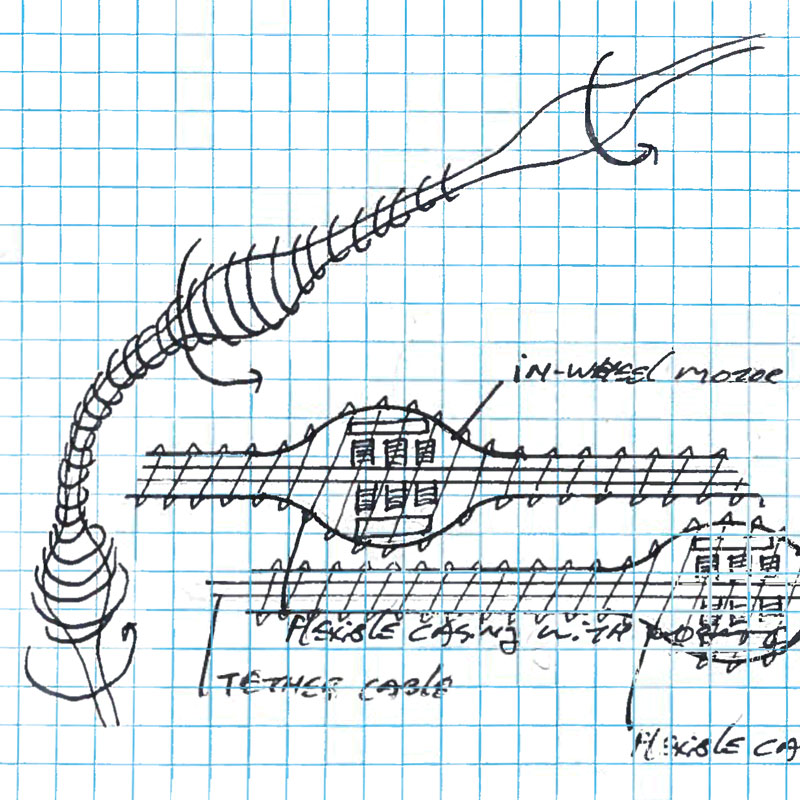 in-wheel motor
Flexible casing with
Tether cable
Flexible ca